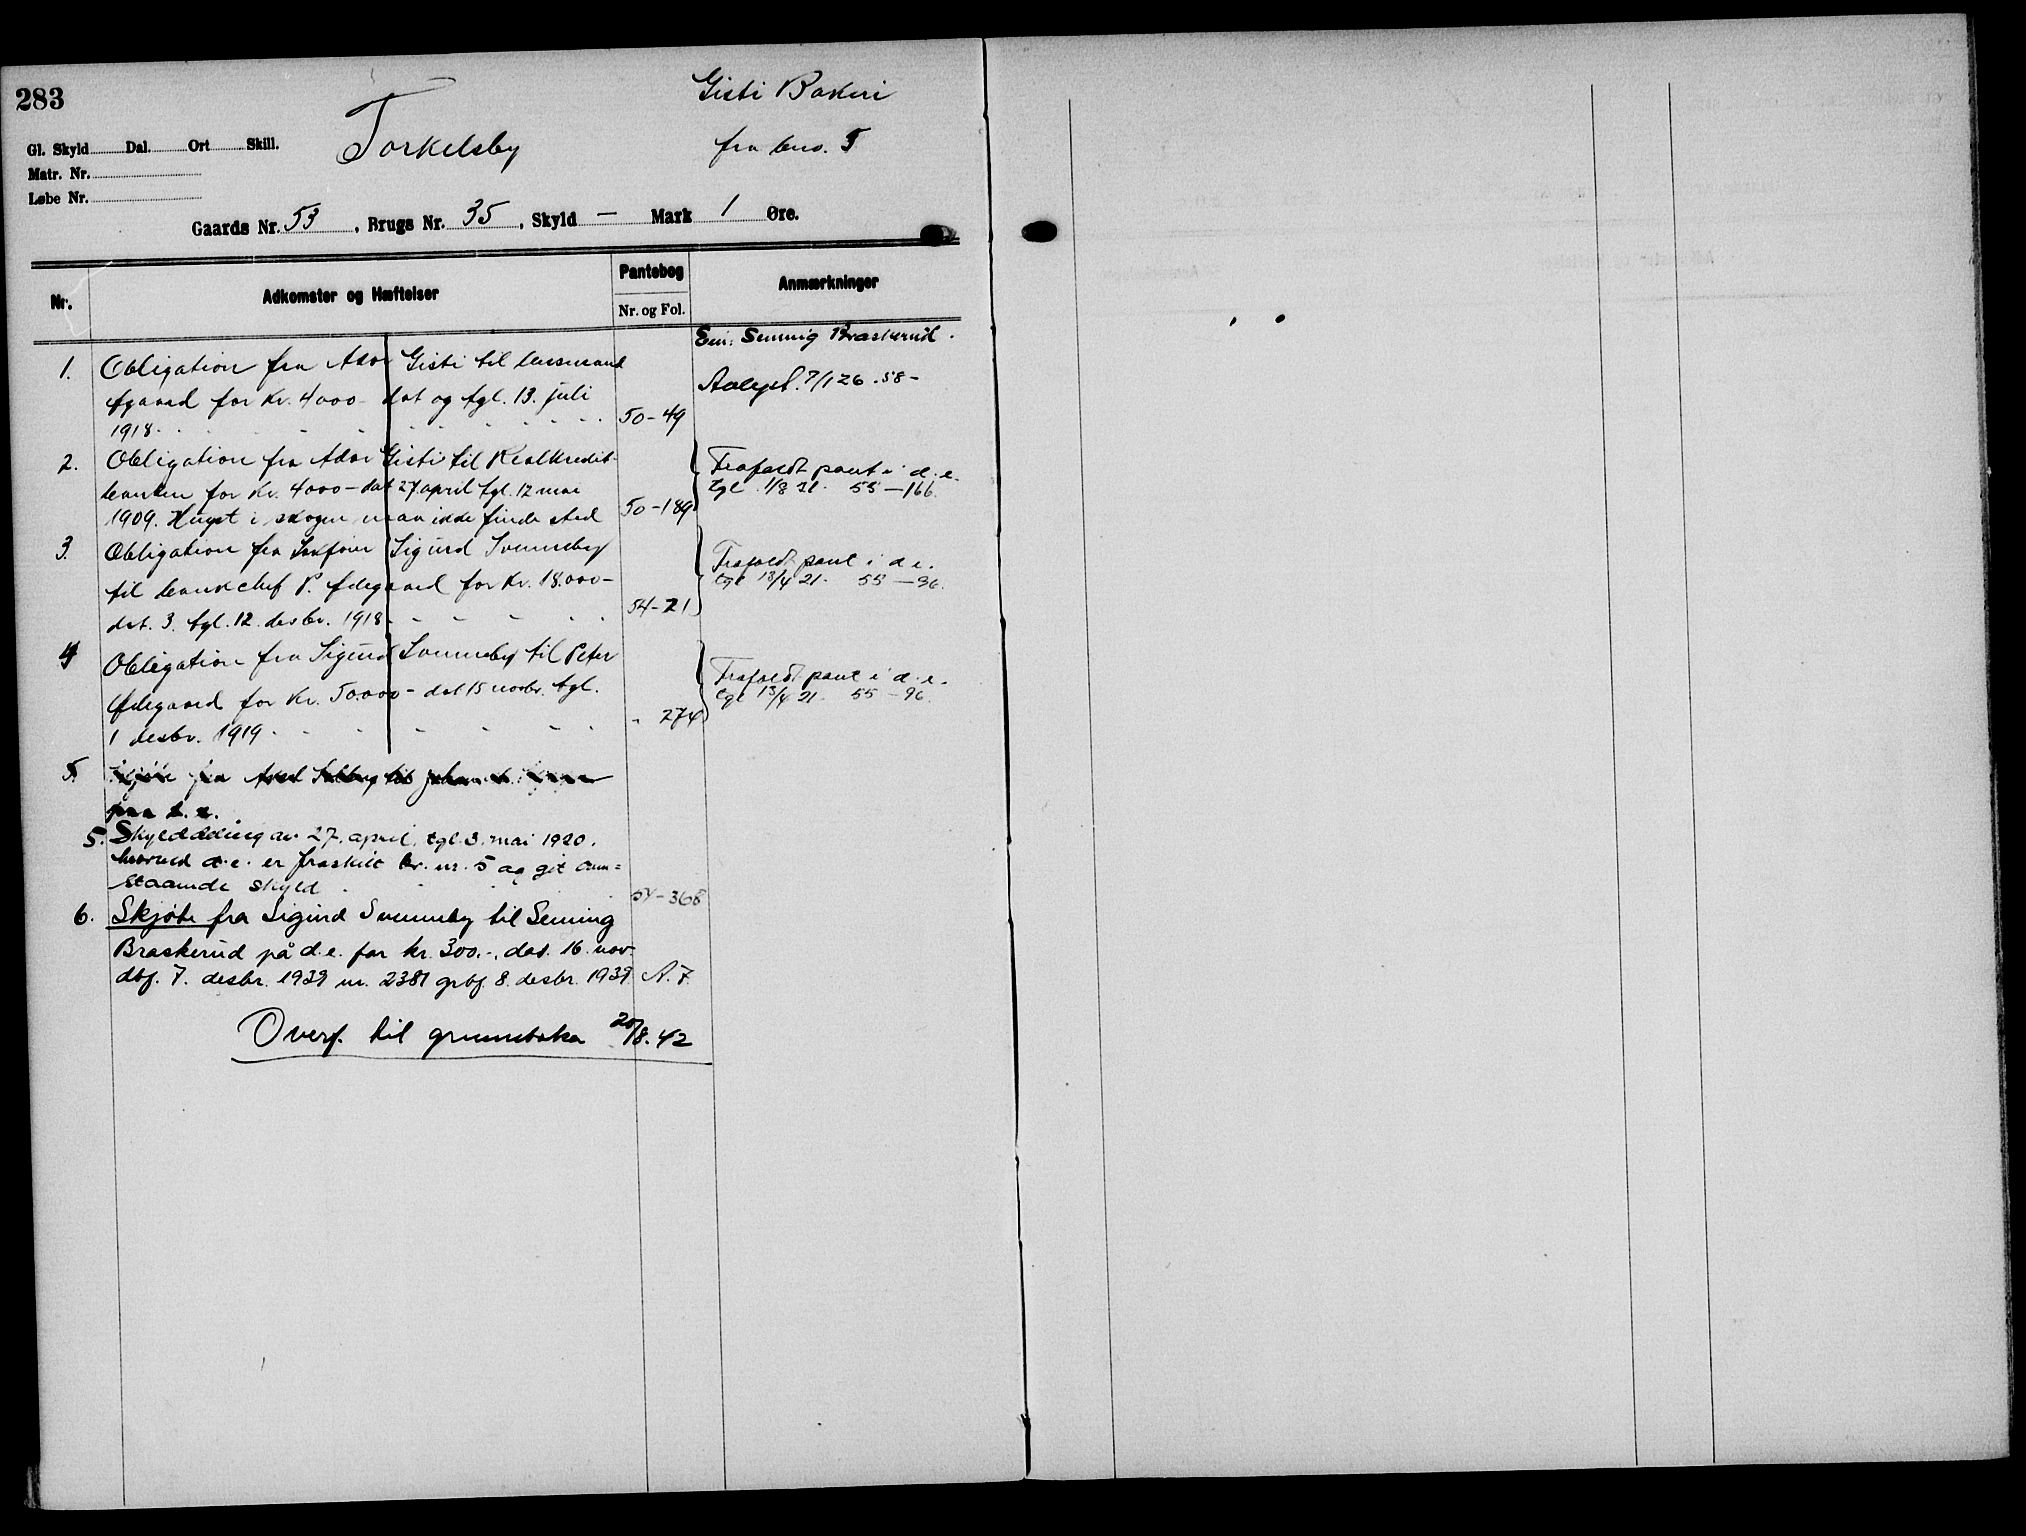 283
Gisti Bakeri
Gl. Skyld Dal. Ort Skill.
Torkelsby
fra bno. 5
Matr. Nr.
Løbe Nr.
Gaards Nr. 53, Brugs Nr. 35, Skyld — Mark 1 Øre.
Nr.
Adkomster og Hæftelser
Pantebog
Nr. og Fol.
Anmærkninger
Ein: Semmig Braskerud.
1. Obligation fra Ador Gisti til
for Kr. 4000 - dat og tgl. 13. juli
1918. 50-49
Avlyst. 7/1 26. 58-
2. Obligation fra Ador Gisti til Realkredit-
banken for Kr. 4000 - dat 27 april tgl. 12 mai
1909. Hugst i skogen maa ikke finde sted 50-189
Frafaldt pant i d.e.
tgl 1/8 21. 55-166.
3. Obligation fra Sakfører Sigurd Svenneby
til bankchef P. Ødegaard for Kr. 18.000-
dat. 3. tgl. 12. desbr. 1918 54-21
Frafaldt pant i d.e.
tgl 13/4 21. 55-96.
4 Obligation fra Sigurd Svenneby til Peter
Ødegaard for Kr. 50.000 - dat 15 novbr. tgl.
1 desbr. 1919 - 274
Frafaldt pant i d.e.
tgl 13/4 21. 55-96.
5. Skjøte fra til
paa d.e.
5. Skylddeling av 27. april, tgl. 3. mai 1920.
hvorved d.e. er fraskilt br. nr. 5 og git oven=
staaende skyld 54-368
6. Skjøte fra Sigurd Svenneby til Seming
Braskerud på d.e. for kr. 300.-, dat. 16. nov.
dbf. 7. desbr. 1939 nr. 2381 grbf. 8. desbr. 1939 A. 7.
Overf. til grunnboka 20/8. 42